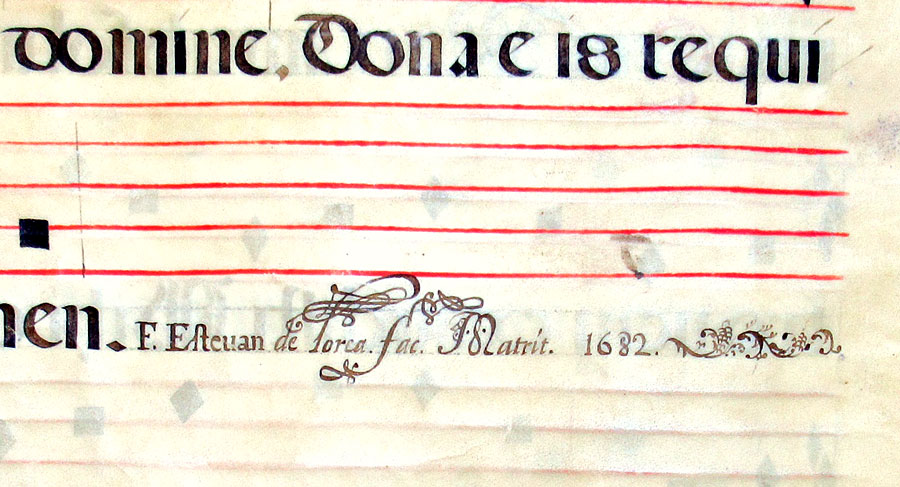 domine. Dona eis requi
men. F. Esteuan de Torca. fac. Matrit. 1682.